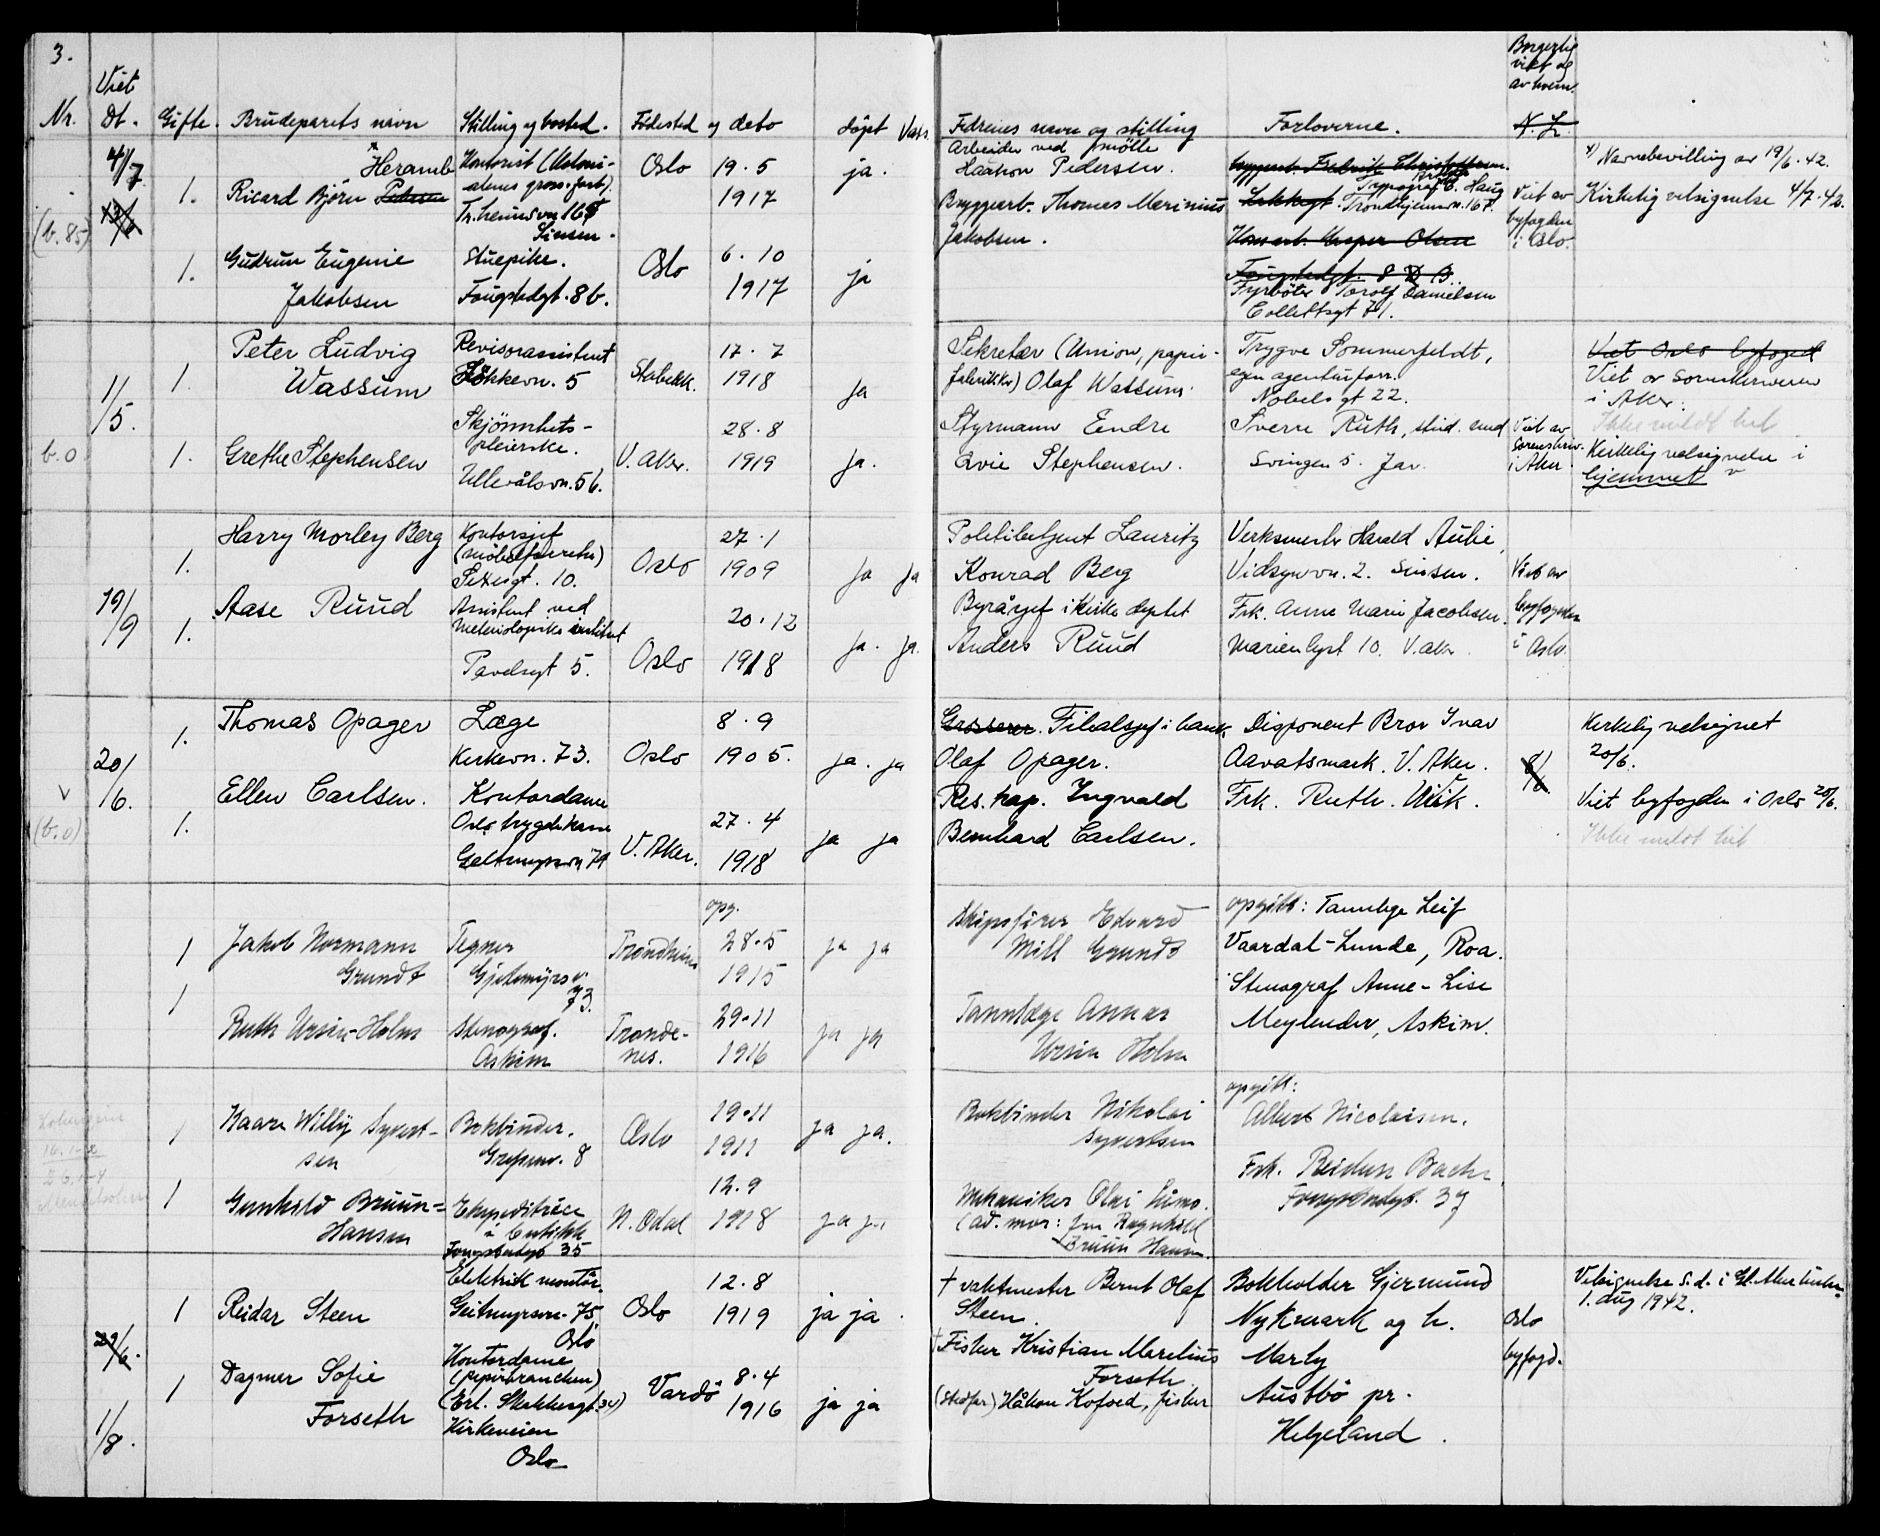 3.
Viet
Nr. Dt. Gifte. Brudeparets navn Stilling og bosted. Fødested og dato døpt Vaks.
Fedrenes navn og stilling Forloverne. Borgerlig viet og av hvem.
4/7
(b. 85)
1. Ricard Björn Pedersen
x Heramb
Kontorist (Koloni-
Tr.heimsvn 168
Sinsen.
Oslo 19.5
1917
ja.
Arbeider ved mølle
Haakon Pedersen
Typograf
Haug
Trondhjemsvn. 167.
x) Navnebevilling av 19/6.42.
Kirkelig velsignelse 4/7.42.
1. Gudrun Eugenie
Jakobsen
Stuepike.
Fougstadgt. 8b.
Oslo 6.10
1917
ja
Bryggearb. Thomas Marinius
Jakobsen.
Kaspar Olsen
Fougstadgt. 8 B.
Fyrbøter Torolf Danielsen
Collettsgt 71.
Viet av
byfogden
i Oslo.
1/5.
b. 0
1. Peter Ludvig
Wassum
Revisorassistent
Løkkevn. 5
Stabekk.
17.7
1918
ja
Sekretær (Union, papir-
fabrikker) Olaf Wassum.
Trygve Sommerfeldt,
egen agenturforr.
Nobelsgt 22.
Viet Oslo byfoged
Viet av sorenskriveren
i Aker.
Ikke meldt hit
1. Grethe Stephensen
Skjønnhets-
pleierske.
Ullevålsvn. 56.
V. Aker.
28.8
1919
ja.
Styrmann Eendre
Qvie Stephensen.
Sverre Ruth, stud. med
Svingen 5. Jar.
Viet av
sorenskriv.
i Aker.
Kirkelig velsignelse i
hjemmet v
19/9
1. Harry Morley Berg
Kontorsjef
Setesgt. 10.
Oslo
27.1
1909
ja ja
Politibetjent Lauritz
Konrad Berg
Verksmester Harald Aulie,
Vidsynvn. 2. Sinsen.
Viet av
byfogden
i Oslo.
1. Aase Ruud
Assistent ved
Meteriologiske institut
Pavelsgt 5.
Oslo
20.12
1918
ja. ja.
Byråsjef i Kirke deptet
Anders Ruud
Frk. Anne Marie Jacobsen.
Marienlyst 10. V. aker.
20/6.
v
(b. 0)
1. Thomas Opager
Læge
Kirkevn. 73.
Oslo
8.9
1905.
ja. ja
Grosserer. Filialsjef i bank
Olaf Opager.
Disponent Bror Ivar
Aavatsmark. V. Aker.
Kirkelig velsignet
20/6.
1. Ellen Carlsen.
Kontordame
Oslo trygdekasse
V. Aker.
27.4
1918
ja ja
Res. kap. Ingvald
Bernhard Carlsen.
Frk. Ruth
Viet byfogden i Oslo 20/6.
Ikke meldt hit
1 Jakob Normann
Grundt
Tegner
Gjetemyrsv.
73.
Trondheim
opg.
28.5
1915
ja ja
Skipsfører Edvard
Mill Grundt
opgitt: Tannlege Leif
Vaardal-Lunde, Roa.
1 Ruth Ursin-Holm
Stenograf.
Askim
Tronde-
nes.
29.11
1916
ja ja
Tannlæge Annar
Ursin Holm
Stenograf Anne-Lise
Meylender, Askim.
1 Kaare Willy Syvert-
sen
Bokbinder.
Grefsenv. 8
Oslo
19.11
1911
ja ja.
Bokbinder Nikolai
Syvertsen
opgitt:
Albert Nicolaisen.
1 Gunhild Bruun-
Hansen
Ekspeditrice
i butikk
Fougstadgt 35
N. Odal
12.9
1918
ja ja
Mekaniker Olai
(ad. mor: fru Ragnhild
Bruun Hansen.
Frk. Reidun
Fougstadgt. 39
29/6.
1/8.
1 Reidar Steen
Elektrik montør.
Geitmyrsvn. 75,
Oslo
Oslo
12.8
1919
ja ja.
† vaktmester Bernt Olaf
Steen.
Bokholder Gjermund
Nykmark og h.
Oslo
byfogd.
Velsignelse s.d. i Gl. Aker kirke
1. aug 1942.
1 Dagmar Sofie
Forseth
Kontordame
(papirbranchen)
Kirkeveien
Oslo
Vardö
8.4
1916
ja ja
† Fisker Kristian Marelius
Forseth.
(stedfar) Håkon Kofoed, fisker
Marly
Austbö pr.
Helgeland.